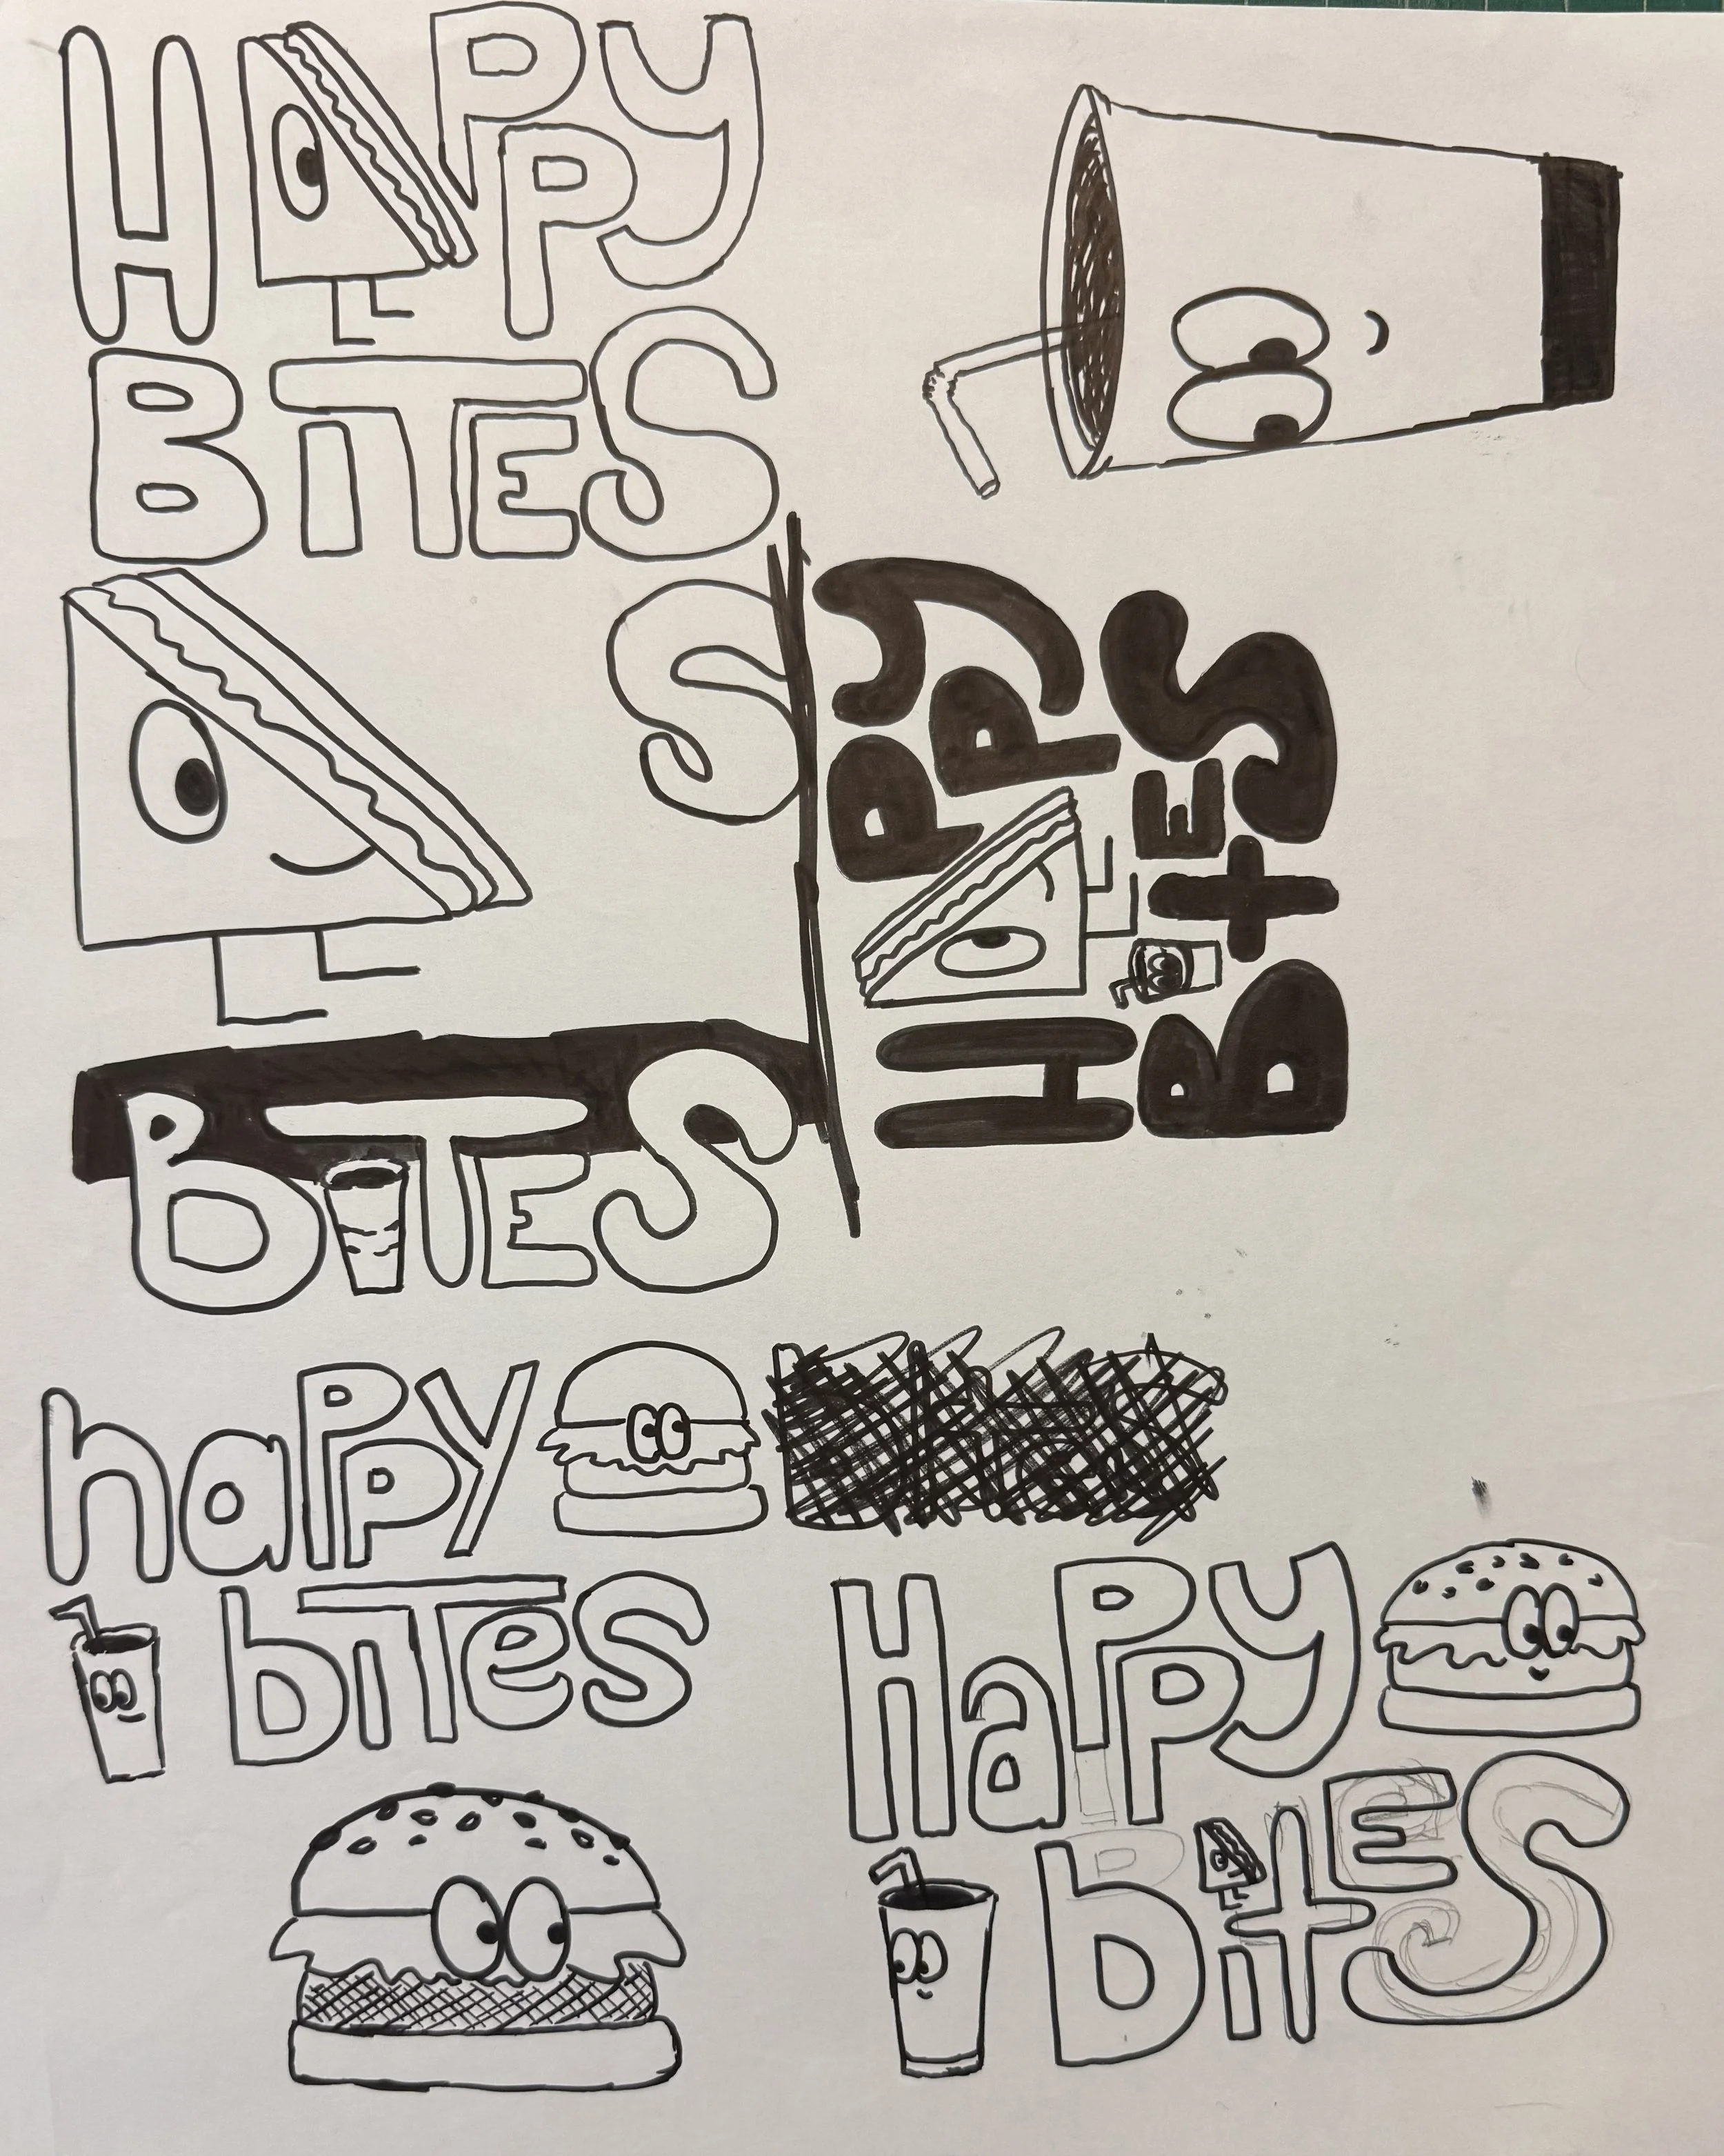 HAPPY
BiTES
S
HAPPY
BitES
BiTES
haPPY
biTes
HaPPy
bitES